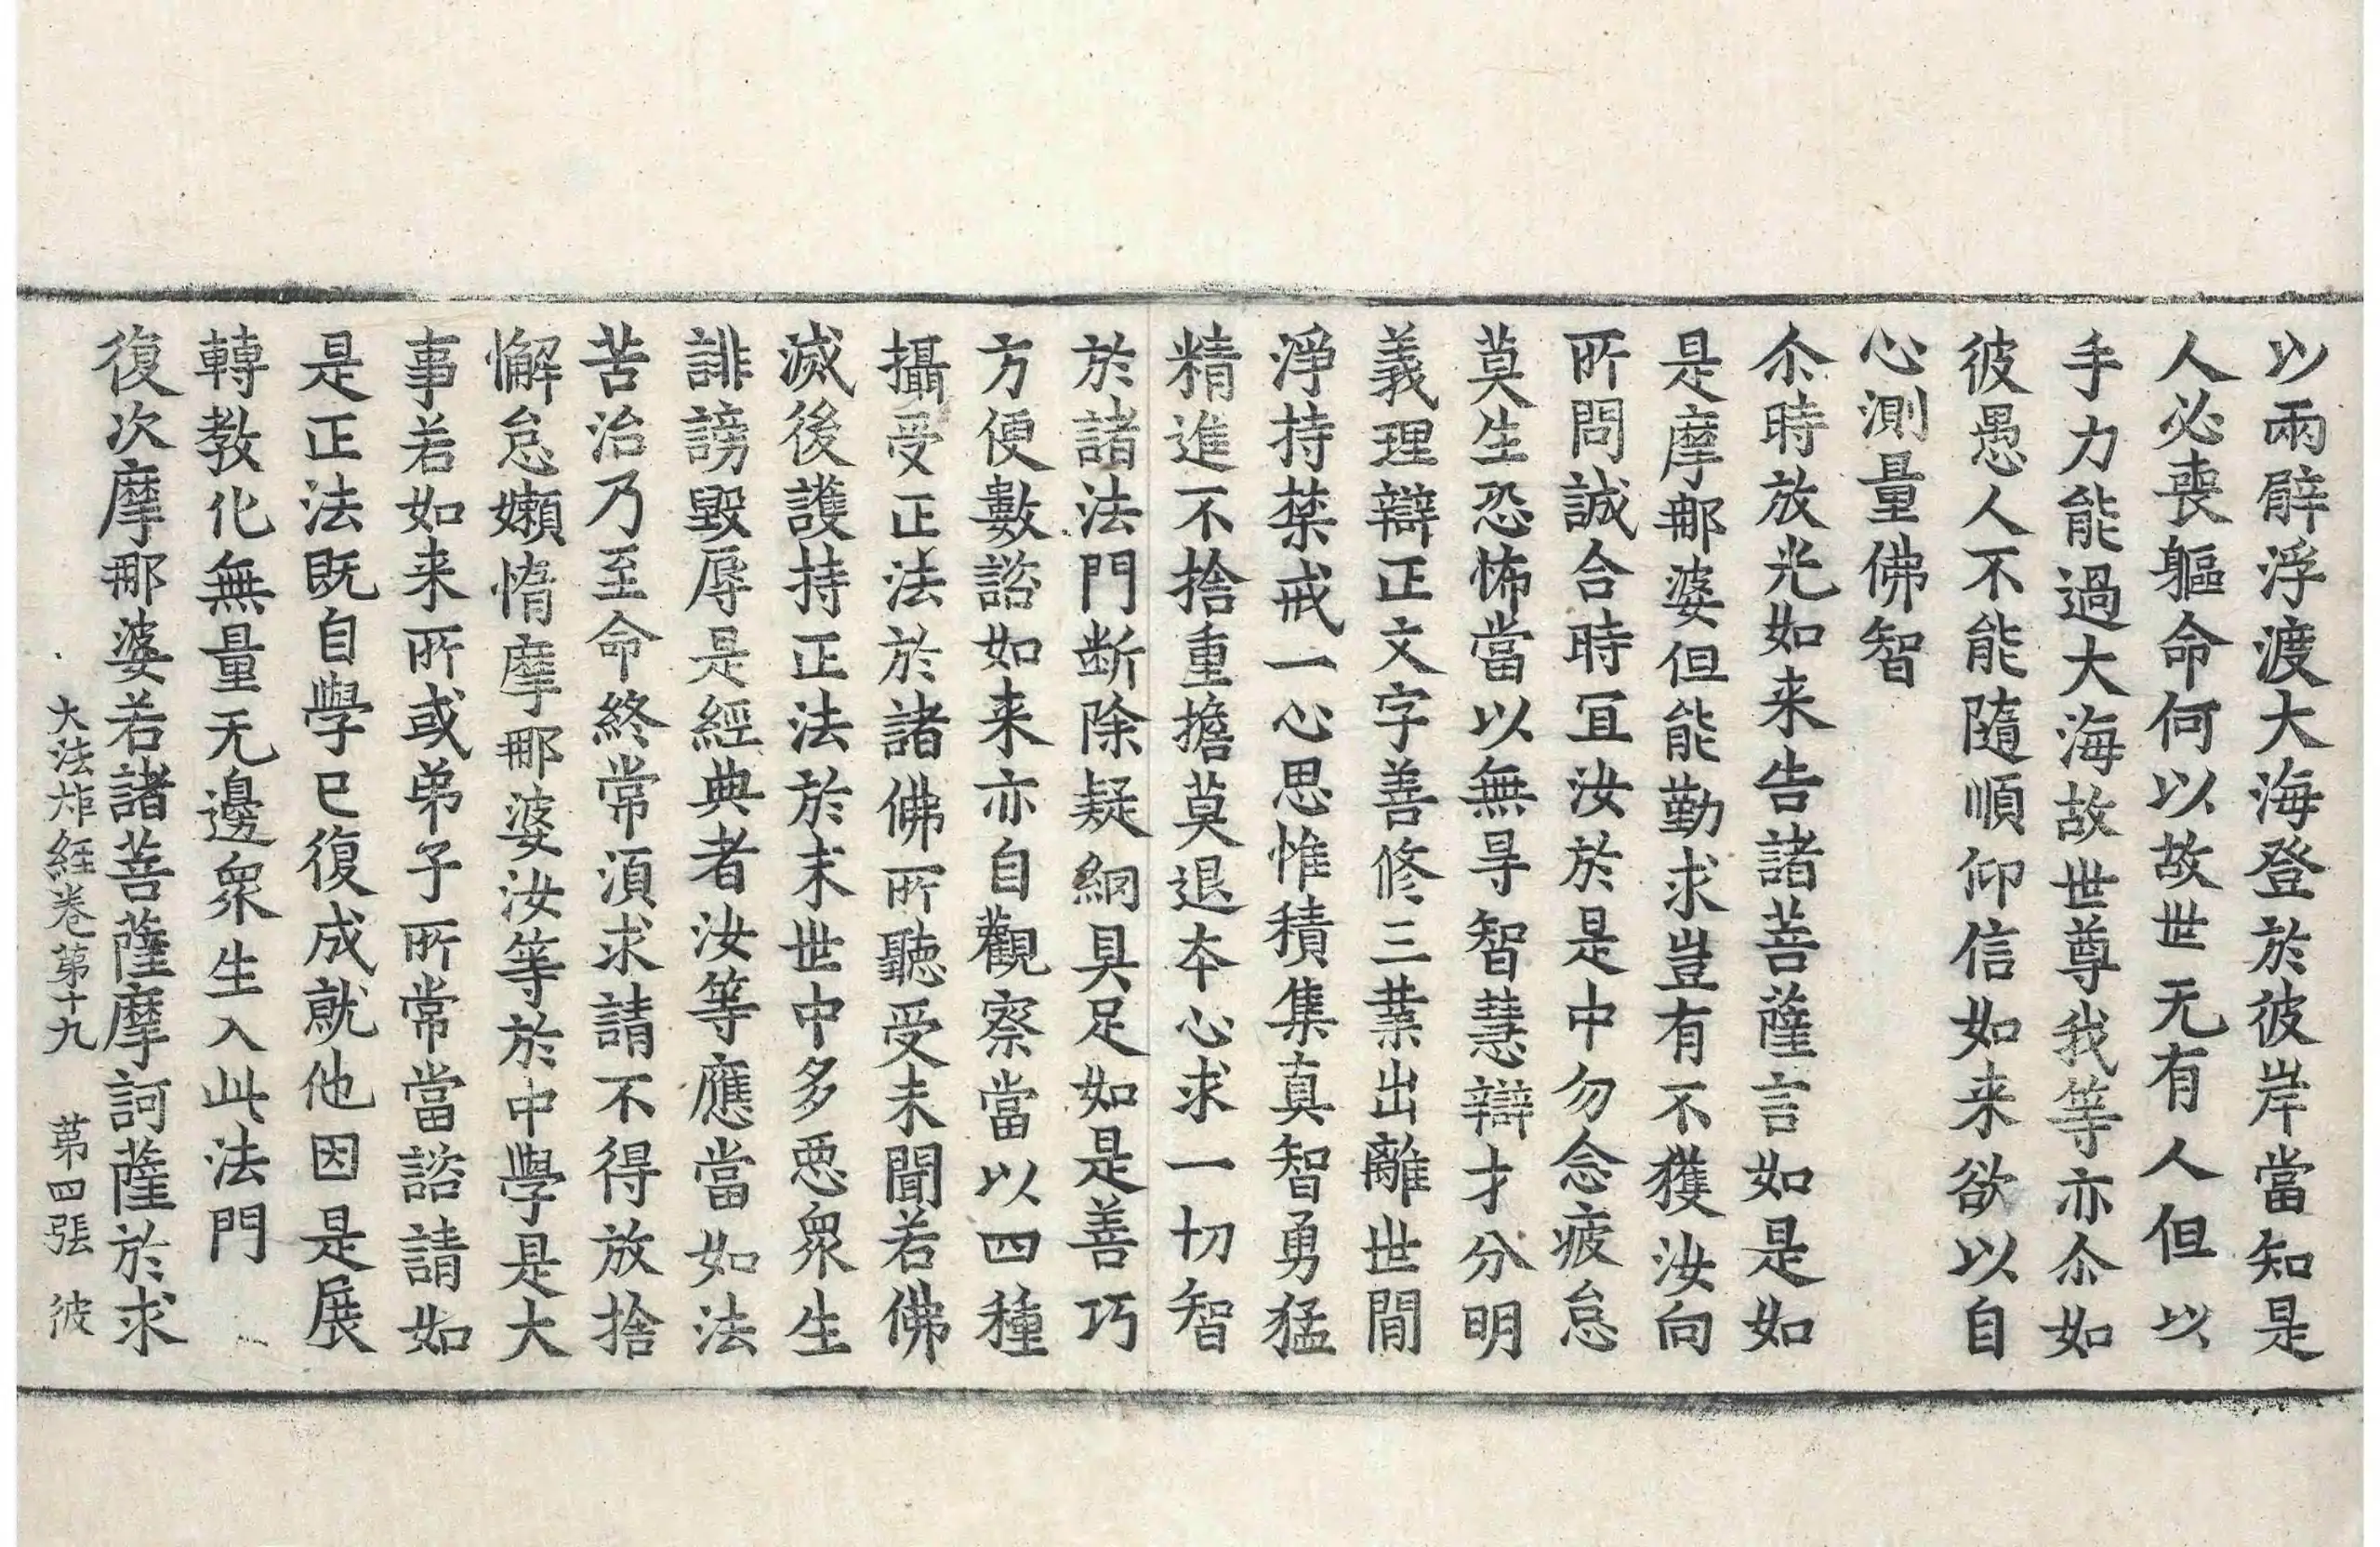 以兩臂浮渡大海登於彼岸當知是
人必喪軀命何以故世无有人但以
手力能過大海故世尊我等亦尒如
彼愚人不能隨順仰信如来欲以自
心測量佛智
尒時放光如来告諸菩薩言如是如
是摩那婆但能勤求豈有不獲汝向
所問誠合時冝汝於是中勿念疲怠
莫生恐怖當以無㝵智慧辯才分明
義理辯正文字善修三業出離世間
淨持禁戒一心思惟積集真智勇猛
精進不捨重擔莫退夲心求一切智
於諸法門断除疑網具足如是善巧
方便數諮如来亦自觀察當以四種
攝受正法於諸佛所聽受未聞若佛
滅後護持正法於末世中多惡衆生
誹謗毀辱是經典者汝等應當如法
苦治乃至命終常湏求請不得放捨
懈怠嬾惰摩那婆汝等於中學是大
事若如来所或弟子所常當諮請如
是正法既自學已復成就他因是展
轉教化無量无邊衆生入此法門
復次摩那婆若諸菩薩摩訶薩於求
大法炬経卷第十九　第四張　彼